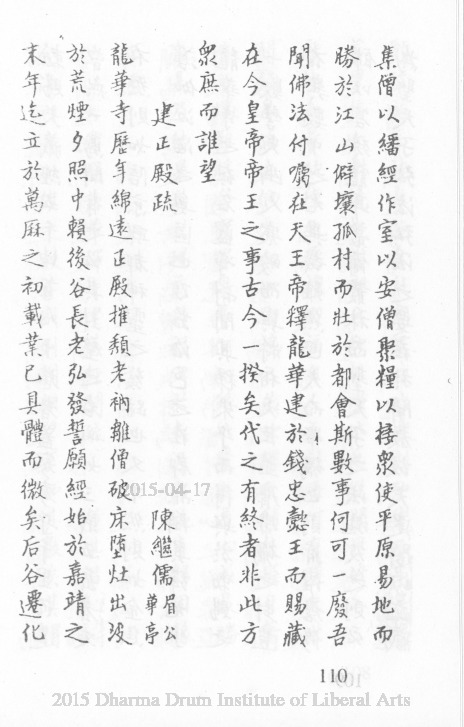 集僧以繙經作室以安僧聚糧以接衆使平原易地而
勝於江山僻壤孤村而壯於都會斯數事何可一廢吾
聞佛法付囑在天王帝釋龍華建於錢忠懿王而賜藏
在今皇帝帝王之事古今一揆矣代之有終者非此方
衆庶而誰望
建正殿疏
陳繼儒眉公華亭
龍華寺歷年綿遠正殿摧頹老衲離僧破床墮灶出沒
於荒煙夕照中賴後谷長老弘發誓願經始於嘉靖之
末年迄立於萬曆之初載業已具體而微矣后谷遷化
110
2015-04-17
2015 Dharma Drum Institute of Liberal Arts